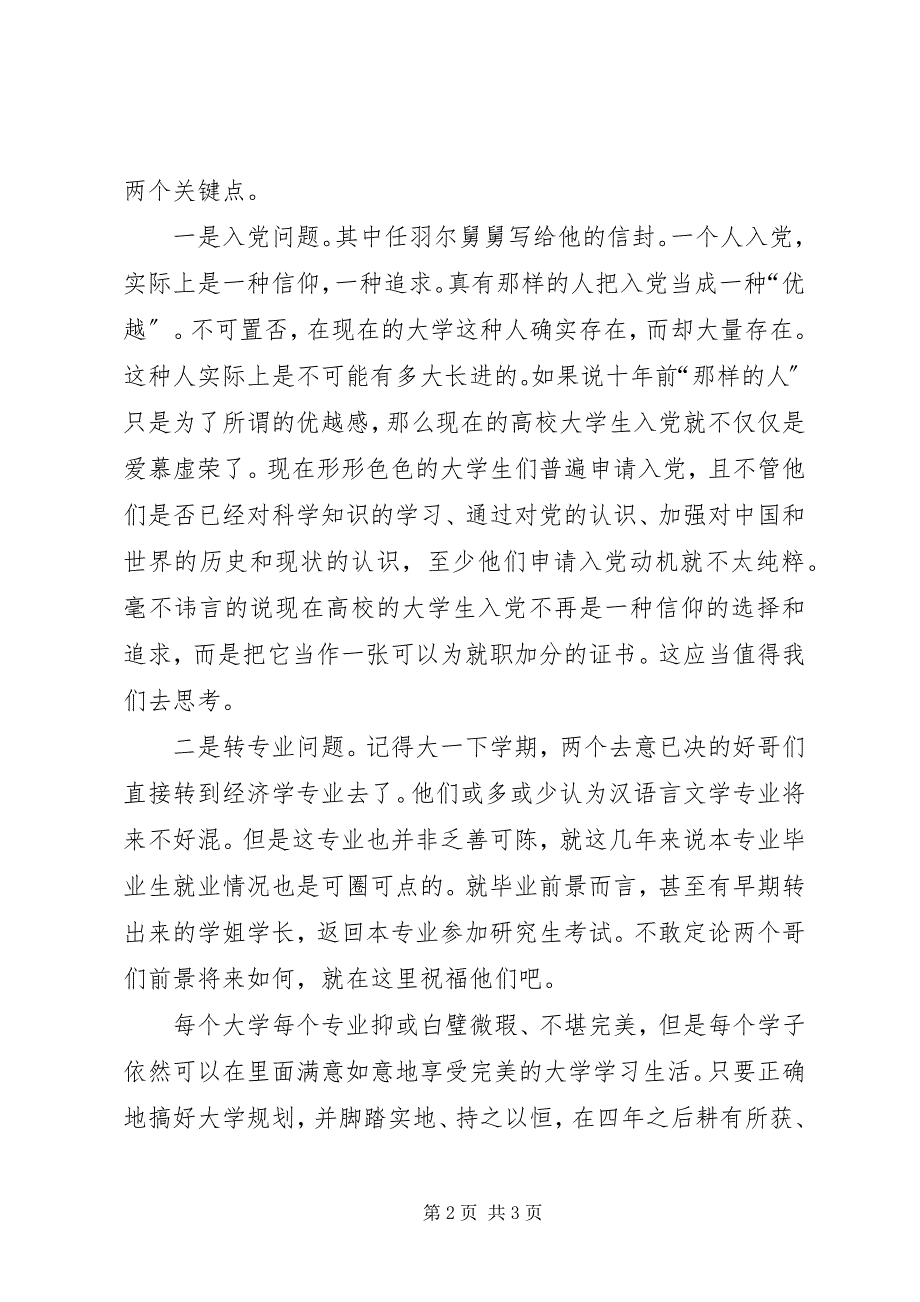 两个关键点。
一是入党问题。其中任羽尔舅舅写给他的信封。一个人入党，
实际上是一种信仰，一种追求。真有那样的人把入党当成一种“优
越〞。不可置否，在现在的大学这种人确实存在，而却大量存在。
这种人实际上是不可能有多大长进的。如果说十年前“那样的人〞
只是为了所谓的优越感，那么现在的高校大学生入党就不仅仅是
爱慕虚荣了。现在形形色色的大学生们普遍申请入党，且不管他
们是否已经对科学知识的学习、通过对党的认识、加强对中国和
世界的历史和现状的认识，至少他们申请入党动机就不太纯粹。
毫不讳言的说现在高校的大学生入党不再是一种信仰的选择和
追求，而是把它当作一张可以为就职加分的证书。这应当值得我
们去思考。
二是转专业问题。记得大一下学期，两个去意已决的好哥们
直接转到经济学专业去了。他们或多或少认为汉语言文学专业将
来不好混。但是这专业也并非乏善可陈，就这几年来说本专业毕
业生就业情况也是可圈可点的。就毕业前景而言，甚至有早期转
出来的学姐学长，返回本专业参加研究生考试。不敢定论两个哥
们前景将来如何，就在这里祝福他们吧。
每个大学每个专业抑或白璧微瑕、不堪完美，但是每个学子
依然可以在里面满意如意地享受完美的大学学习生活。只要正确
地搞好大学规划，并脚踏实地、持之以恒，在四年之后耕有所获、
第 2 页 共 3 页